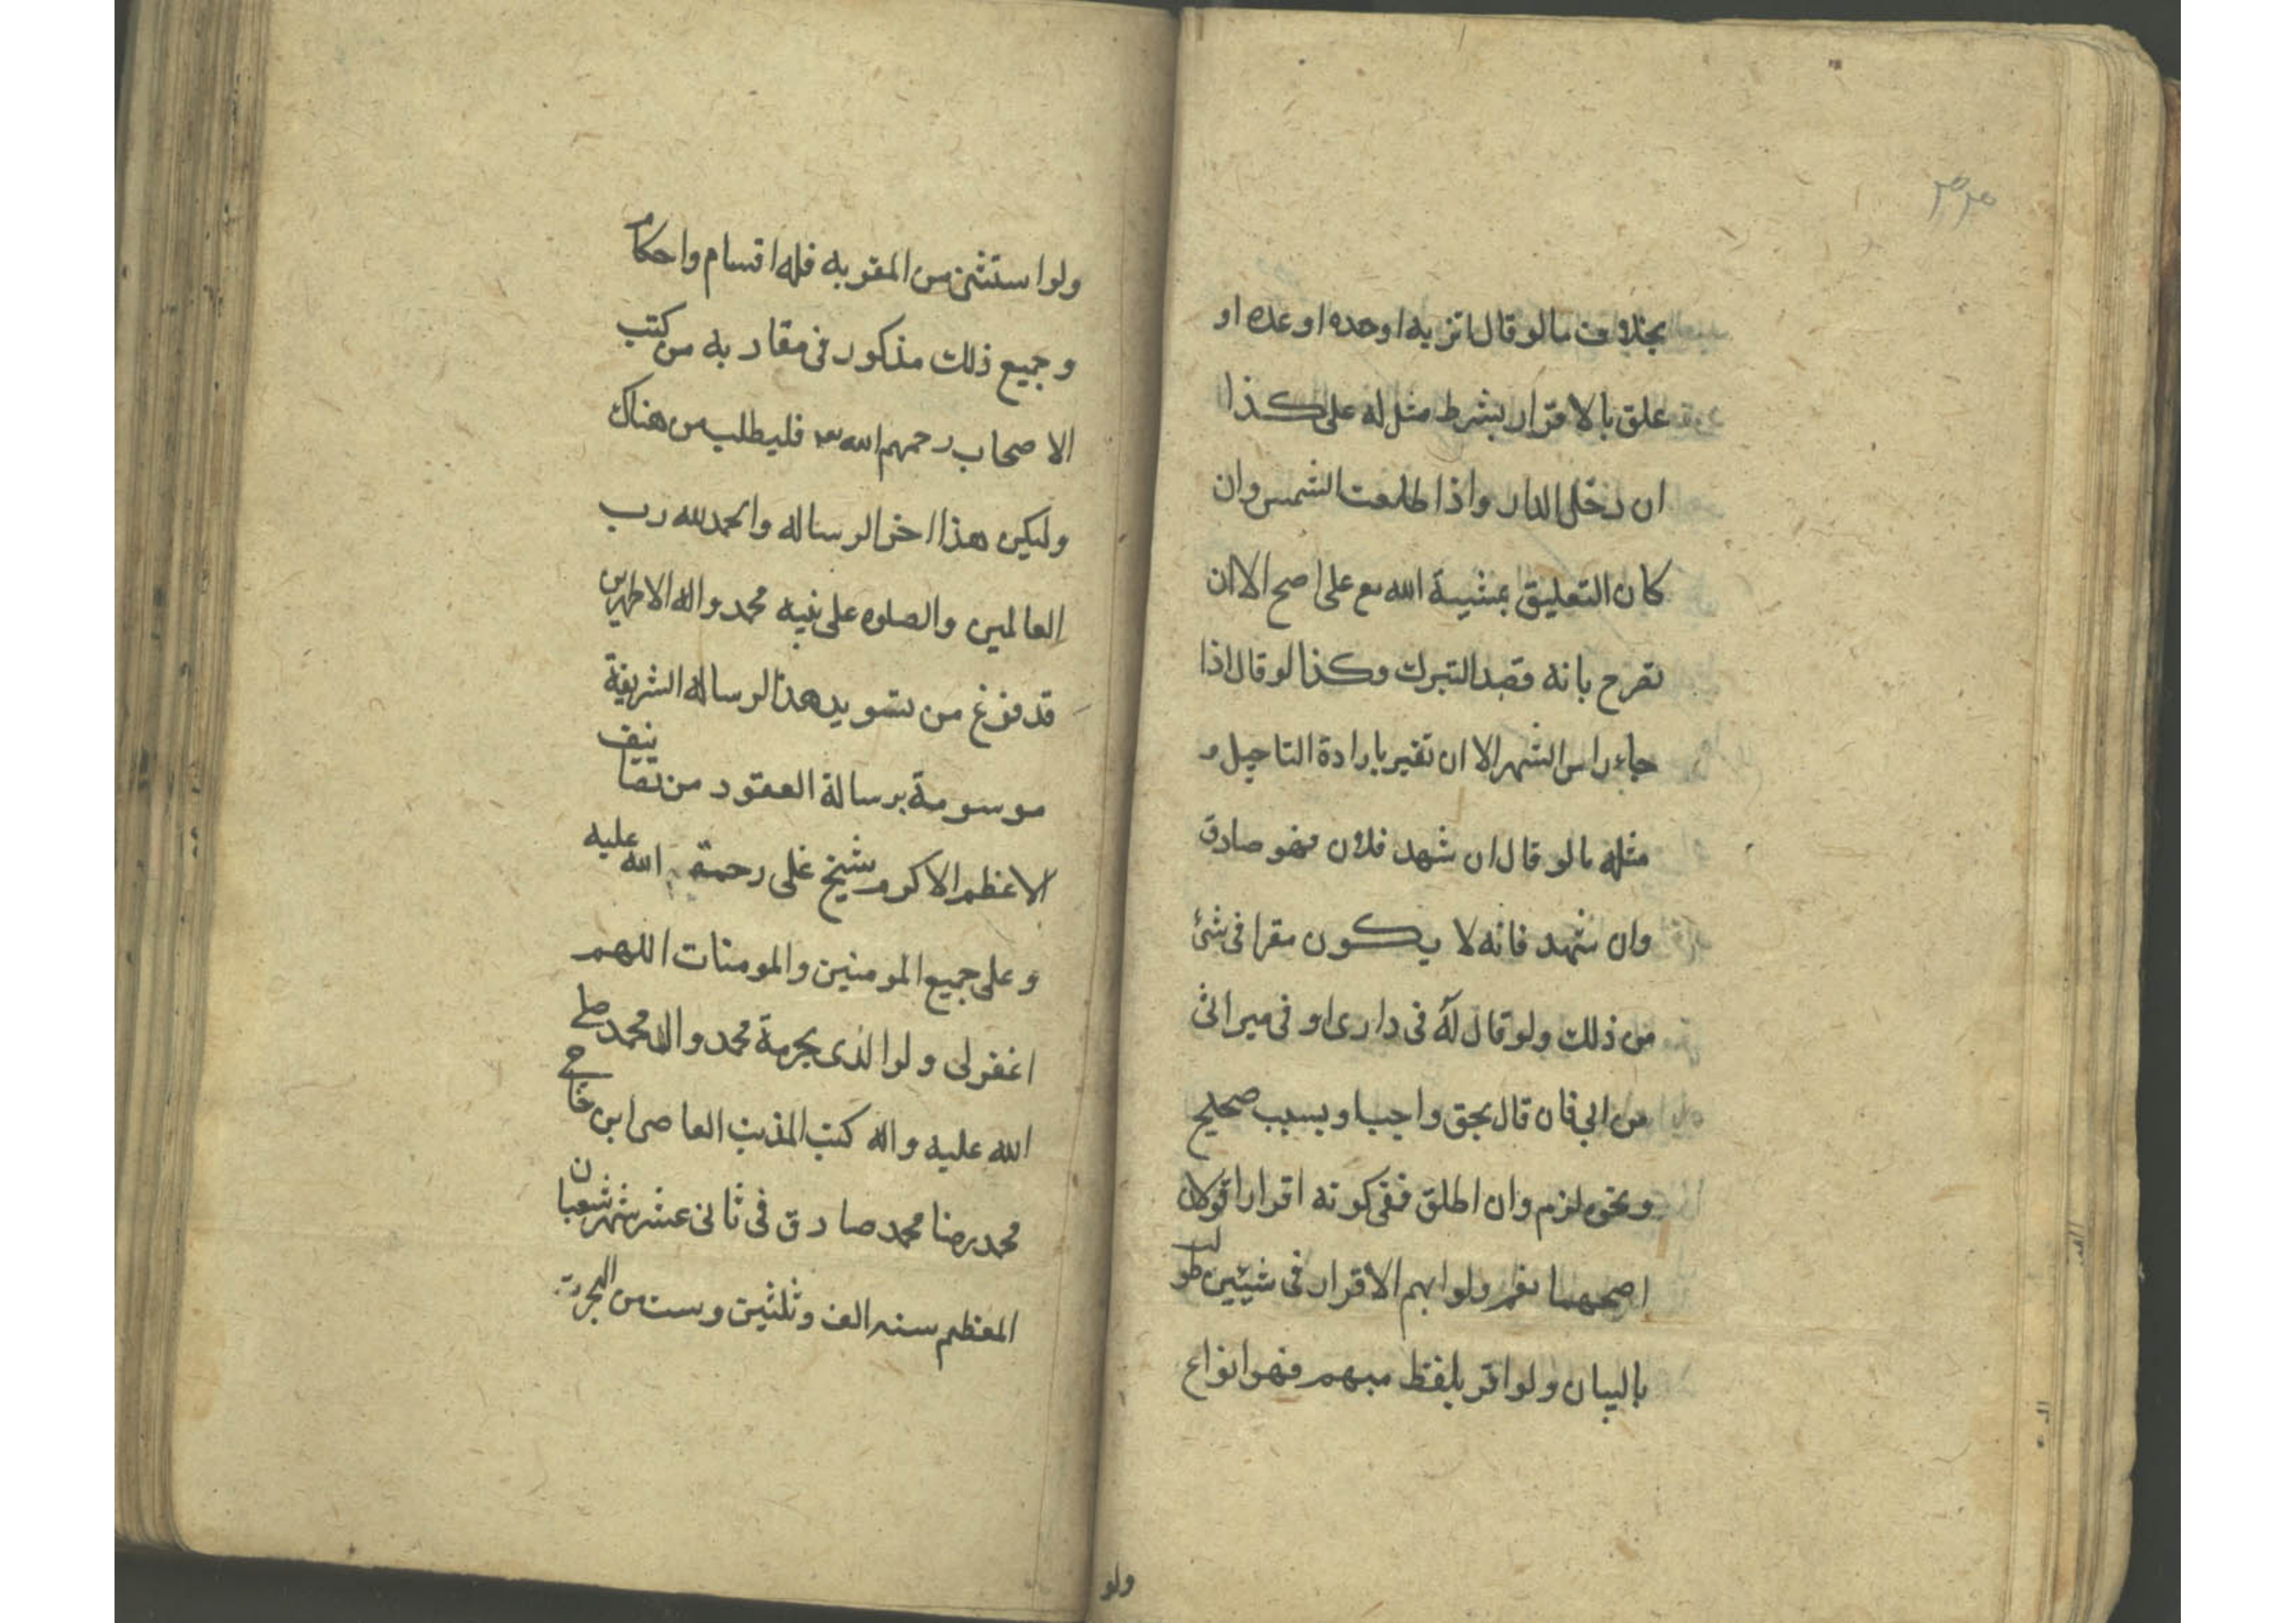 بخلاف ما لو قال اتزنه او خده او عده او
علق بالاقرار بشرط مثل له على كذا
ان دخل الدار واذا طلعت الشمس وان
كان التعليق بمشية الله تع على اصح الا ان
تصرح بانه قصد التبرك وكذا لو قال اذا
جاء راس الشهر الا ان تفسر بارادة التاجيل و
مثله ما لو قال ان شهد فلان فهو صادق
وان شهد فانه لا يكون مقرا فى شئ
من ذلك ولو قال له فى دارى او فى ميراثى
من ابي فان قال بحق واجب او بسبب صحيح
ونحوه لزم وان اطلق ففى كونه اقرارا قولان
اصحهما نعم ولو ابهم الاقرار فى شيئين طولب
بالبيان ولو اقر بلفظ مبهم فهو انواع
ولو
ولو استثنى من المقر به فله اقسام واحكام
وجميع ذلك مذكور فى مقار به من كتب
الاصحاب رحمهم الله فليطلب من هناك
وليكن هذا اخر الرساله والحمد لله رب
العالمين والصلوه على نبيه محمد واله الاطهرين
قد فرغ من تسويد هذا الرساله الشريفة
موسومة برسالة العقود من تصانيف
الاعظم الاكرم شيخ على رحمة الله عليه
وعلى جميع المومنين والمومنات اللهم
اغفر لى ولوالدى بحرمة محمد وال محمد صلى
الله عليه واله كتب المذنب العاصى ابن حاجى
محمد رضا محمد صادق فى ثانى عشر شهر شعبان
المعظم سنه الف وثلثين وست من الهجرت